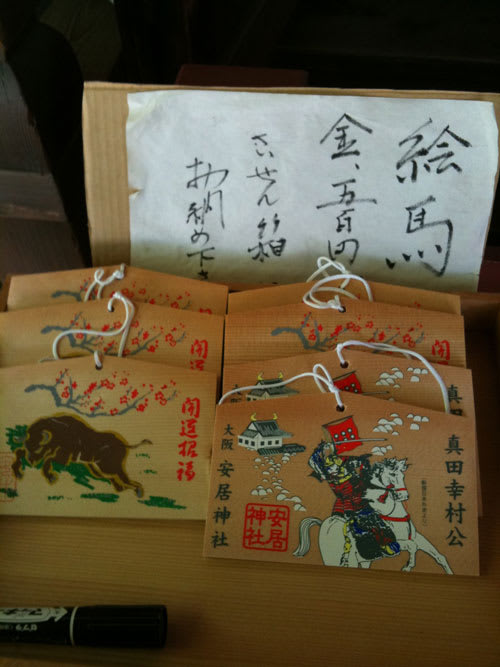 絵馬
金、五百円
さいせん箱
お納め下さ
開運招福
開運
開
真田幸村公
真田
大阪 安居神社
安居神社